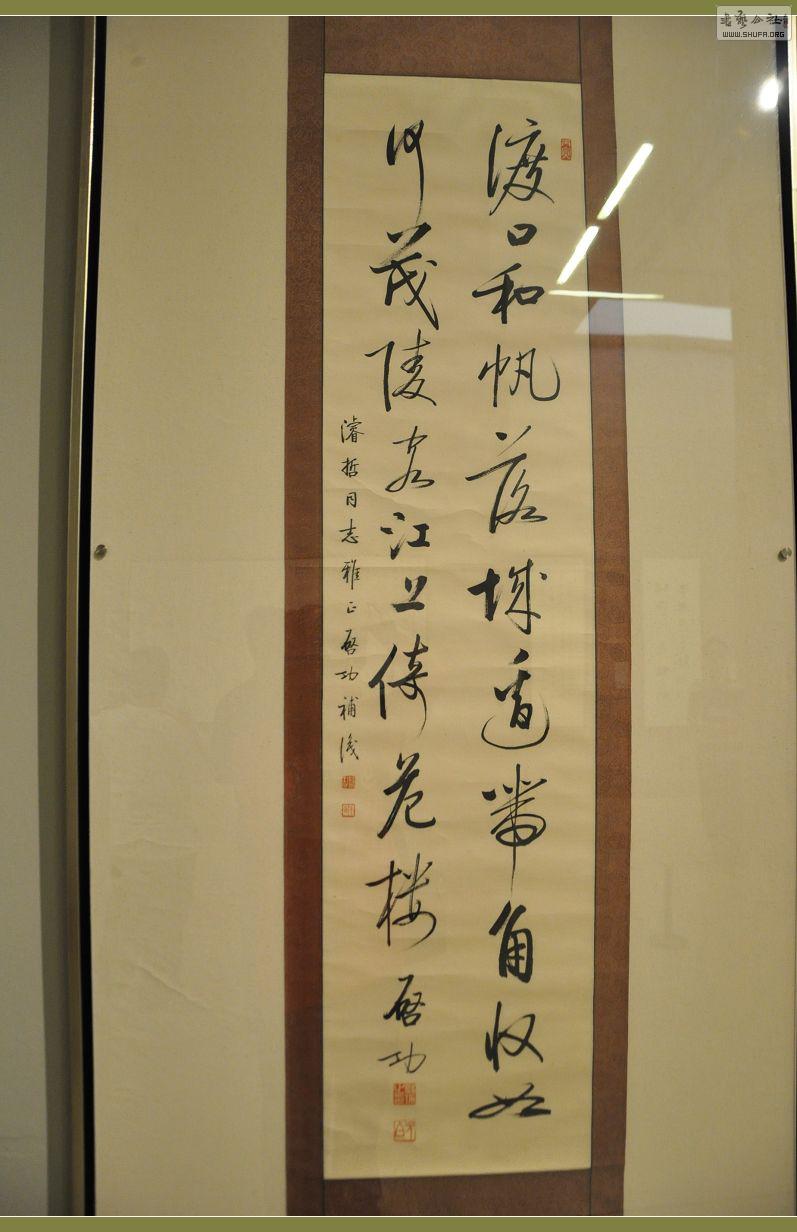 渡口和帆落城边带角收如
何茂陵客江上倚危楼启功
濬哲同志雅正启功补识
书艺公社
WWW.SHUFA.ORG